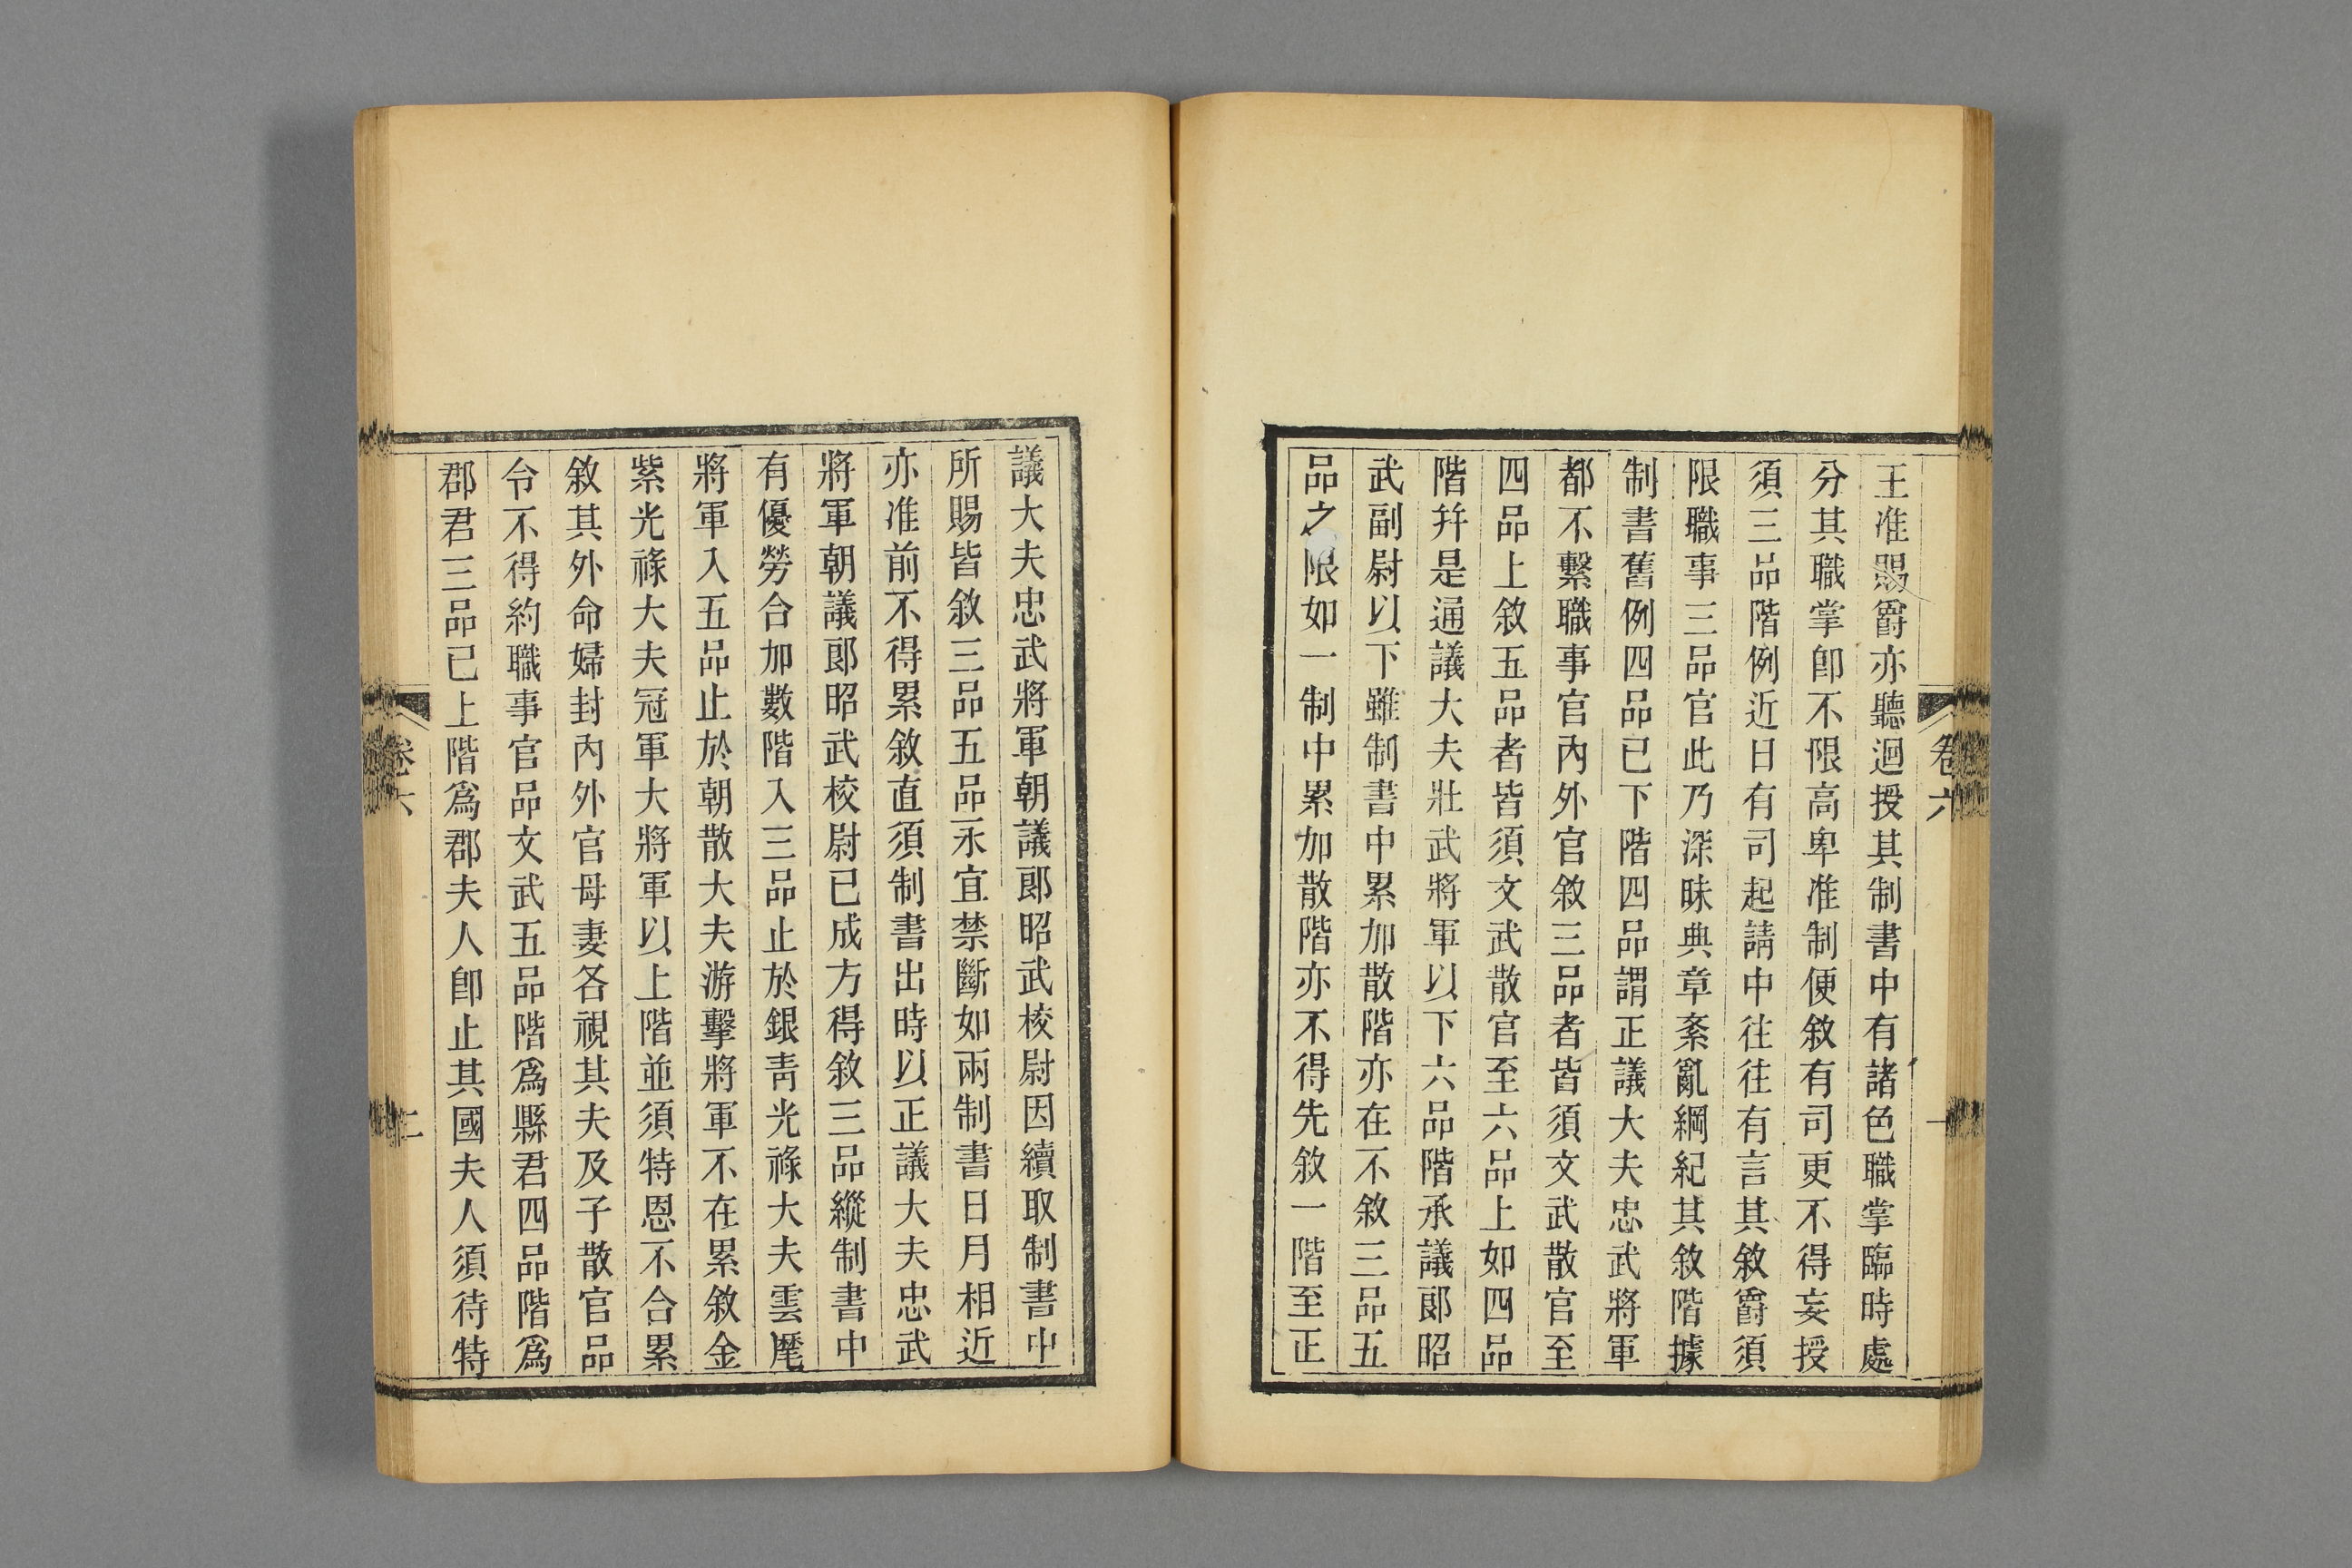 卷六
一
王准賜爵亦聽迴授其制書中有諸色職掌臨時處
分其職掌卽不限高卑准制便敘有司更不得妄授
須三品階例近日有司起請中往往有言其敘爵須
限職事三品官此乃深昧典章紊亂綱紀其敘階據
制書舊例四品已下階四品謂正議大夫忠武將軍
都不繫職事官內外官敘三品者皆須文武散官至
四品上敘五品者皆須文武散官至六品上如四品
階幷是通議大夫壯武將軍以下六品階承議郞昭
武副尉以下雖制書中累加散階亦在不敘三品五
品之限如一制中累加散階亦不得先敘一階至正
議大夫忠武將軍朝議郞昭武校尉因續取制書中
所賜皆敘三品五品永宜禁斷如兩制書日月相近
亦准前不得累敘直須制書出時以正議大夫忠武
將軍朝議郞昭武校尉已成方得敘三品縱制書中
有優勞合加數階入三品止於銀靑光祿大夫雲麾
將軍入五品止於朝散大夫游擊將軍不在累敘金
紫光祿大夫冠軍大將軍以上階並須特恩不合累
敘其外命婦封內外官母妻各視其夫及子散官品
令不得約職事官品文武五品階爲縣君四品階爲
郡君三品已上階爲郡夫人卽止其國夫人須待特
卷六
二